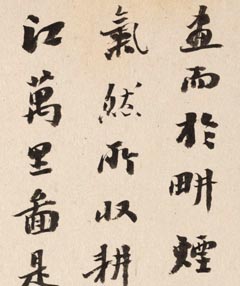 畫而於畊煙
氣然所収耕
江萬里圖是